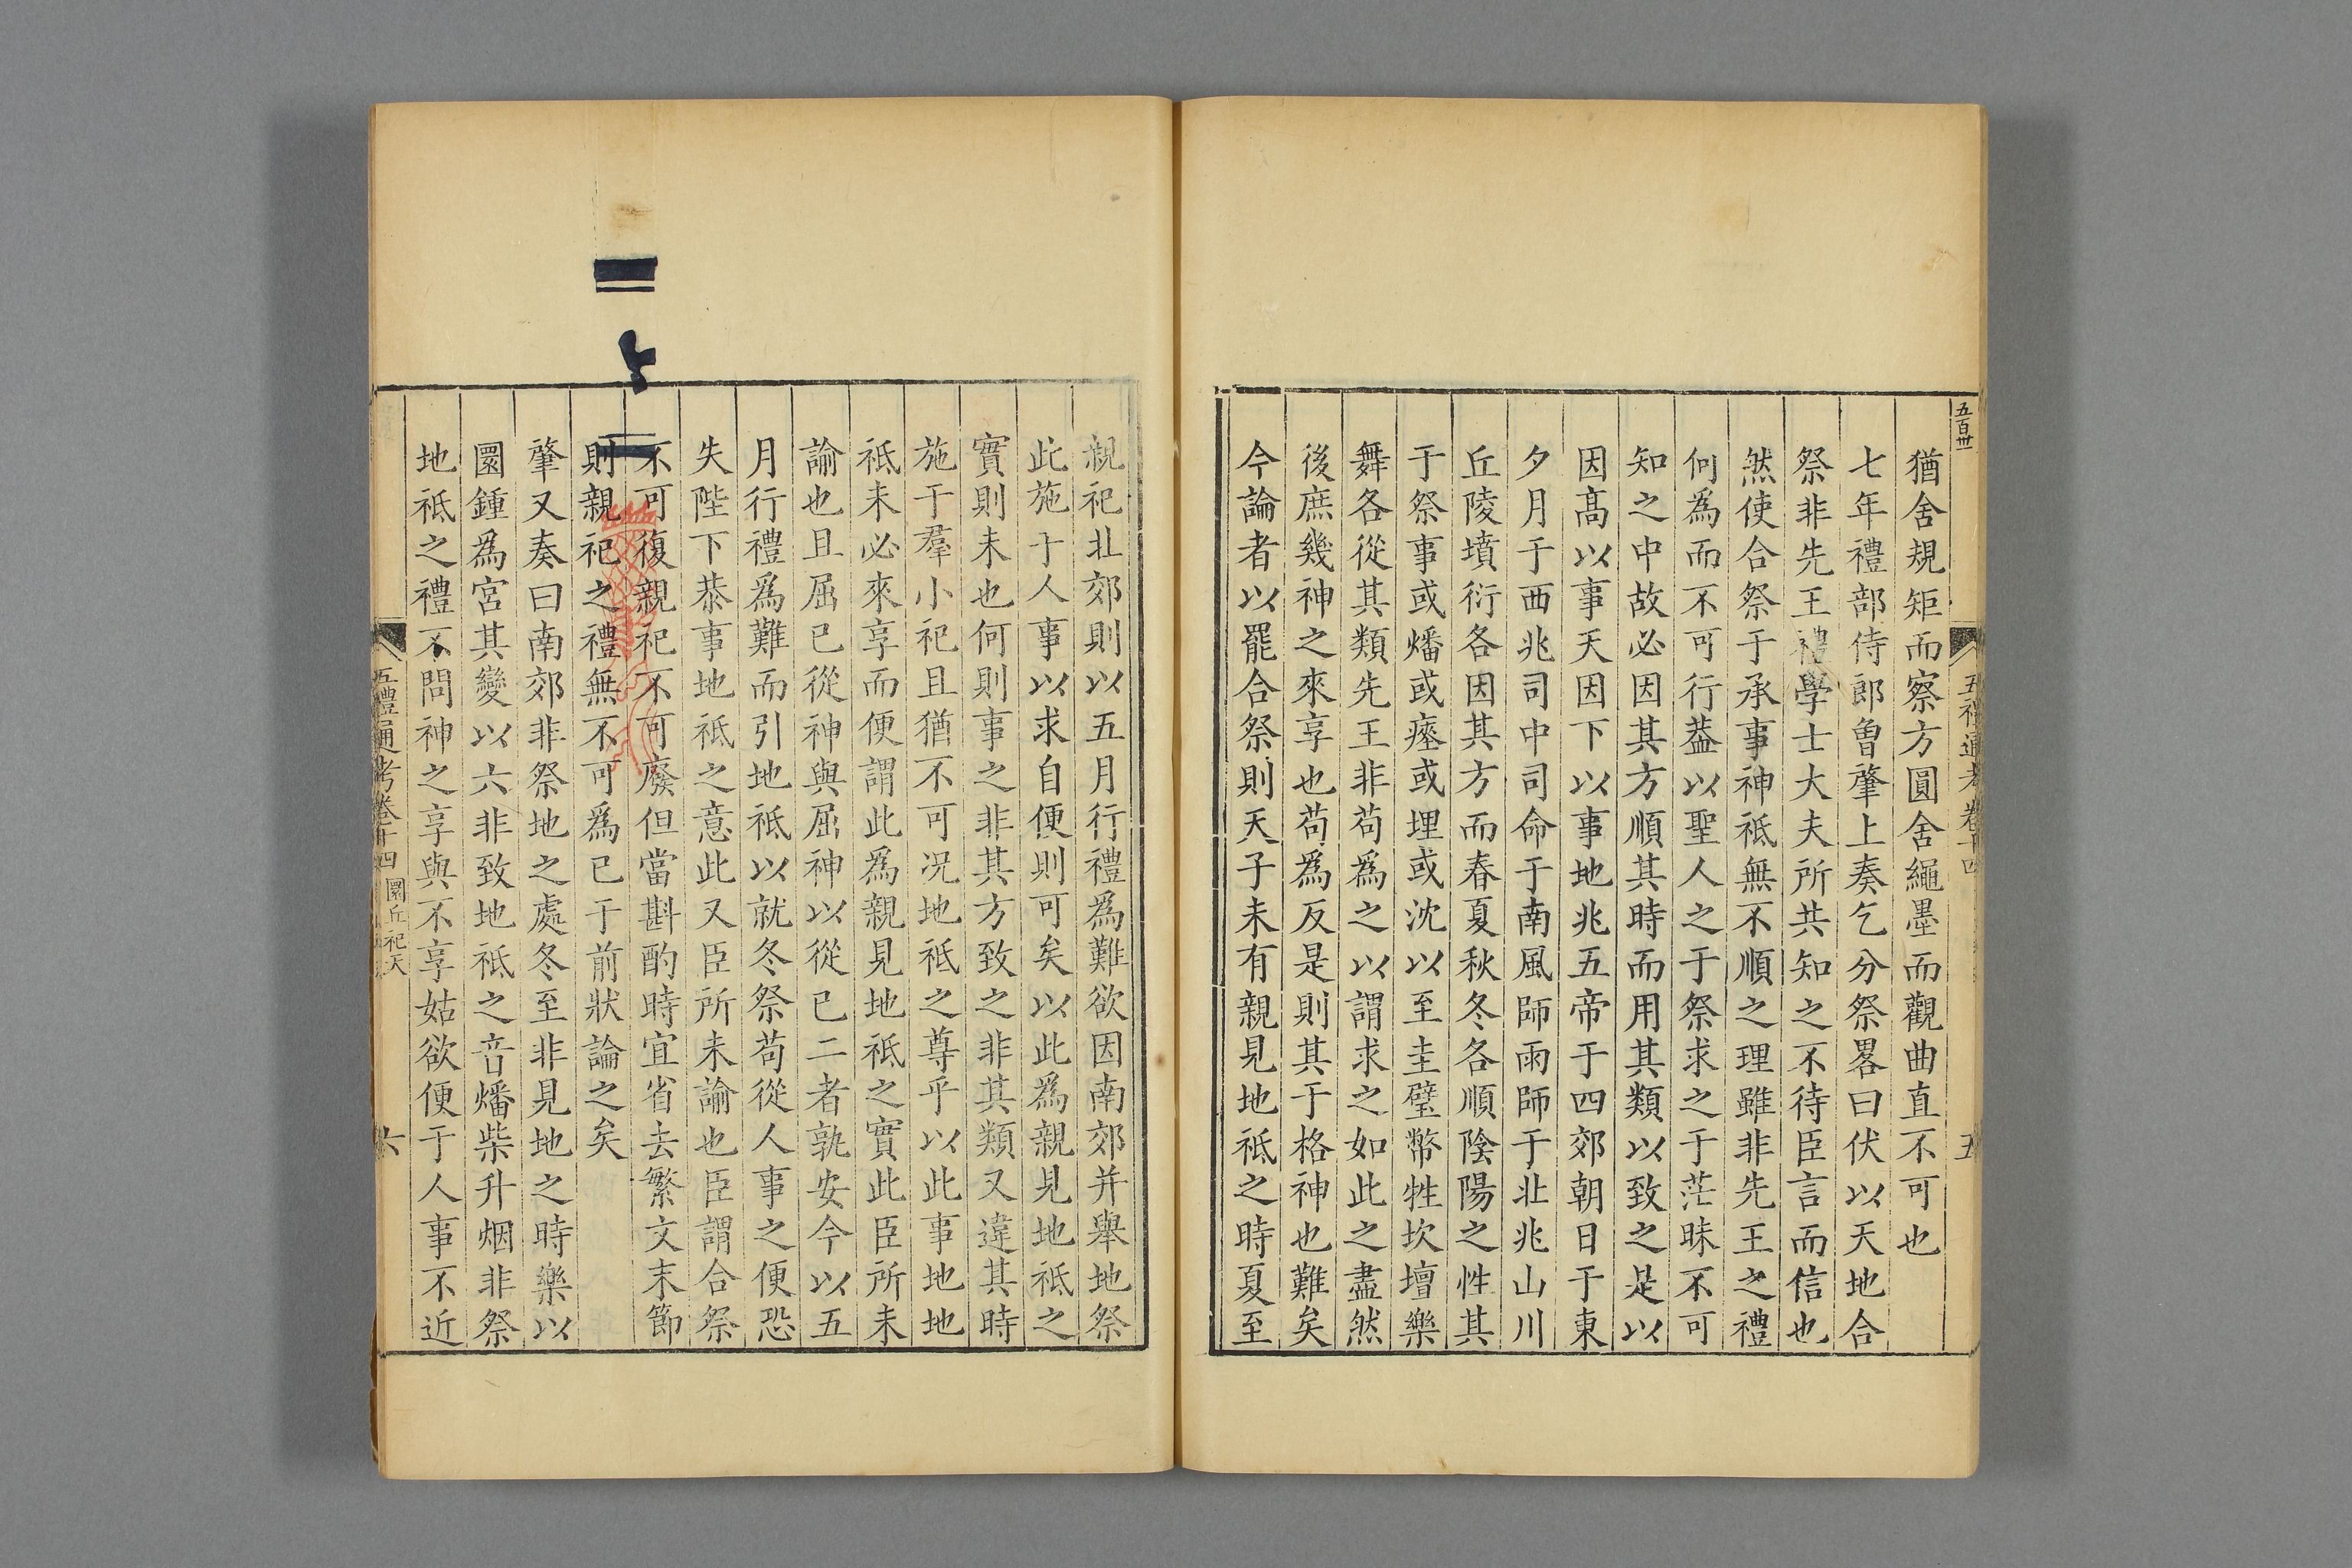 五百卅一
五禮通考卷十四
五
猶舍規矩而察方圓舍繩墨而觀曲直不可也
七年禮部侍郎曾肇上奏乞分祭畧曰伏以天地合
祭非先王禮學士大夫所共知之不待臣言而信也
然使合祭于承事神祗無不順之理雖非先王之禮
何為而不可行葢以聖人之于祭求之于茫昧不可
知之中故必因其方順其時而用其類以致之是以
因髙以事天因下以事地兆五帝于四郊朝日于東
夕月于西兆司中司命于南風師雨師于北兆山川
丘陵墳衍各因其方而春夏秋冬各順陰陽之性其
于祭事或燔或瘞或埋或沈以至圭璧幣牲坎壇樂
舞各從其類先王非苟為之以謂求之如此之盡然
後庶幾神之來享也苟為反是則其于格神也難矣
今論者以罷合祭則天子未有親見地祗之時夏至
親祀北郊則以五月行禮為難欲因南郊并舉地祭
此施于人事以求自便則可矣以此為親見地祗之
實則未也何則事之非其方致之非其類又違其時
施于羣小祀且猶不可況地祗之尊乎以此事地地
祗未必來享而便謂此為親見地祗之實此臣所未
諭也且屈已從神與屈神以從已二者孰安今以五
月行禮為難而引地祗以就冬祭苟從人事之便恐
失陛下恭事地祗之意此又臣所未諭也臣謂合祭
不可復親祀不可廢但當斟酌時宜省去繁文末節
則親祀之禮無不可為已于前狀論之矣
肇又奏曰南郊非祭地之處冬至非見地之時樂以
圜鍾為宮其變以六非致地祗之音燔柴升烟非祭
地祗之禮不問神之享與不享姑欲便于人事不近
五禮通考卷十四
圜丘祀天
六